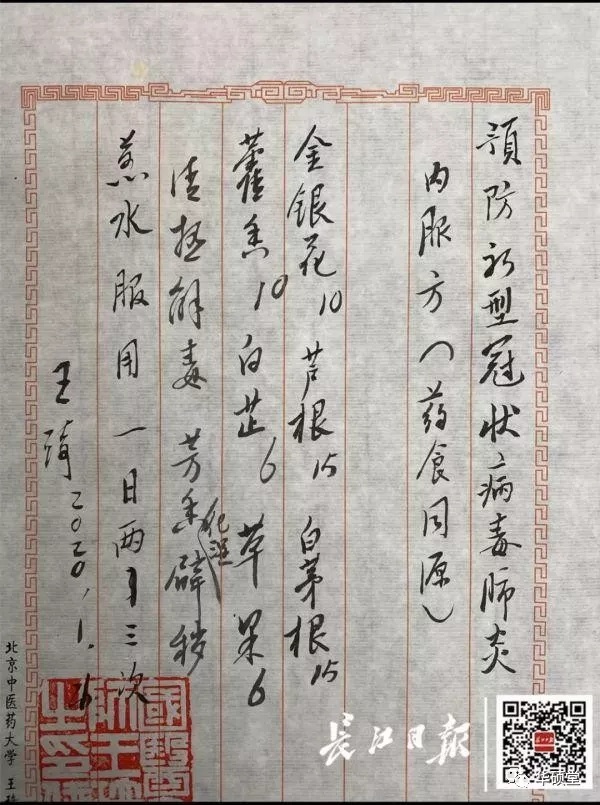 預防新型冠状病毒肺炎
内服方（药食同源）
金银花10 芦根15 白茅根15
藿香10 白芷6 草果6
清瘟解毒 芳香化湿辟秽
煎水服用 一日两到三次
王琦 2020.1.
北京中医药大学 王琦
长江日报
华硕堂